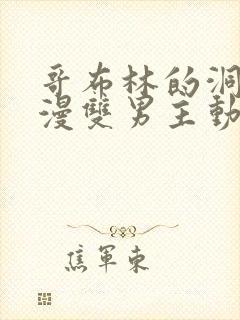 哥布林的洞
漫雙男主動
焦軍東